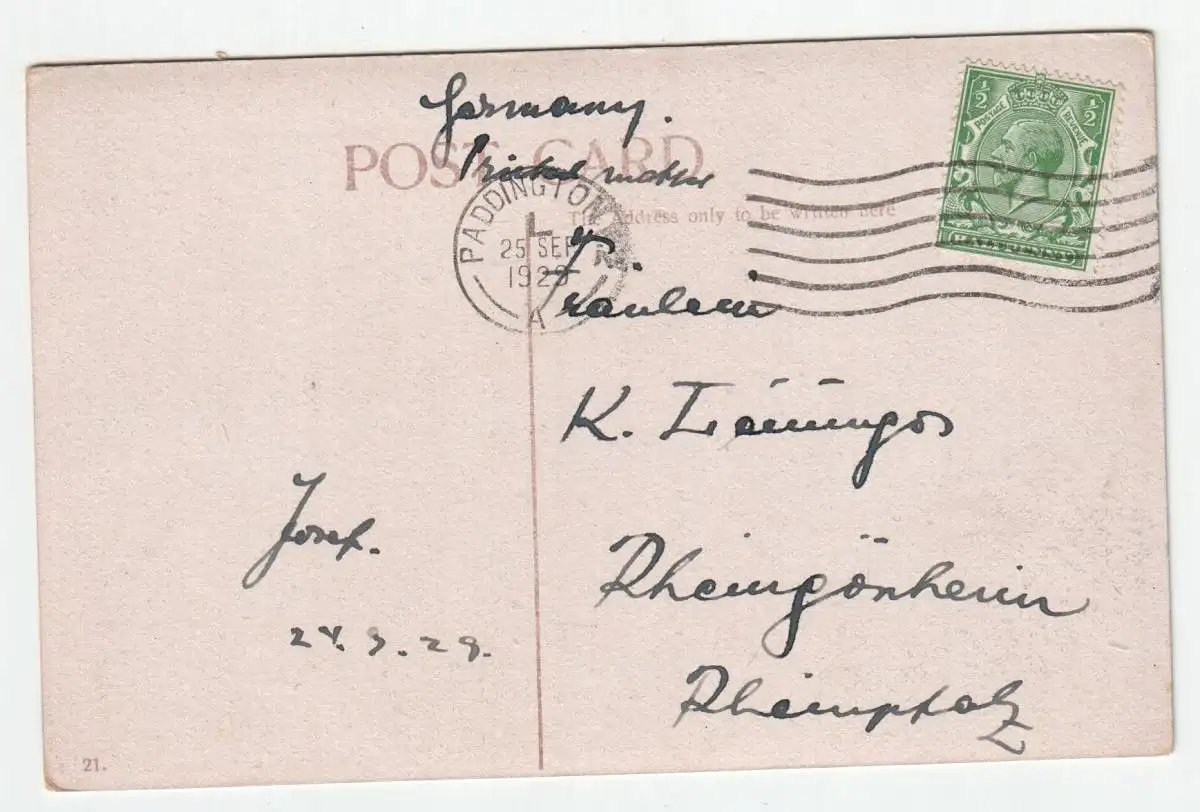 Germany.
POST CARD
Printed matter
The Address only to be written here
PADDINGTON
25 SEP
1929
A
½ POSTAGE REVENUE ½
Fräulein
K.
Rheingönheim
Rheinpfalz
Josef.
24.9.29.
21.